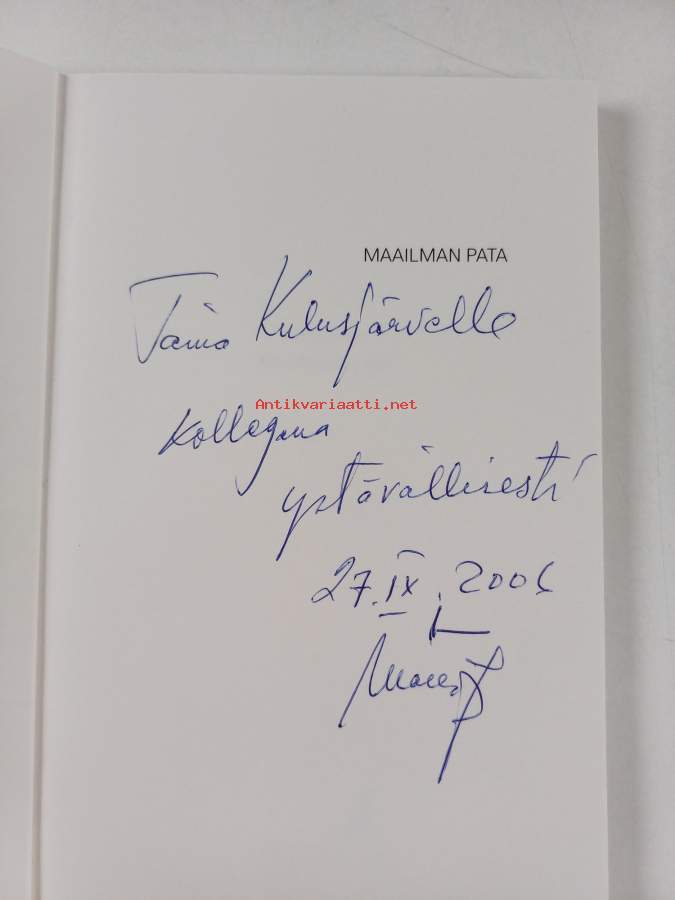 MAAILMAN PATA
Taina Kulusjärvelle
Antikvariaatti.net
kollegana
ystävällisesti
27.IX.2006